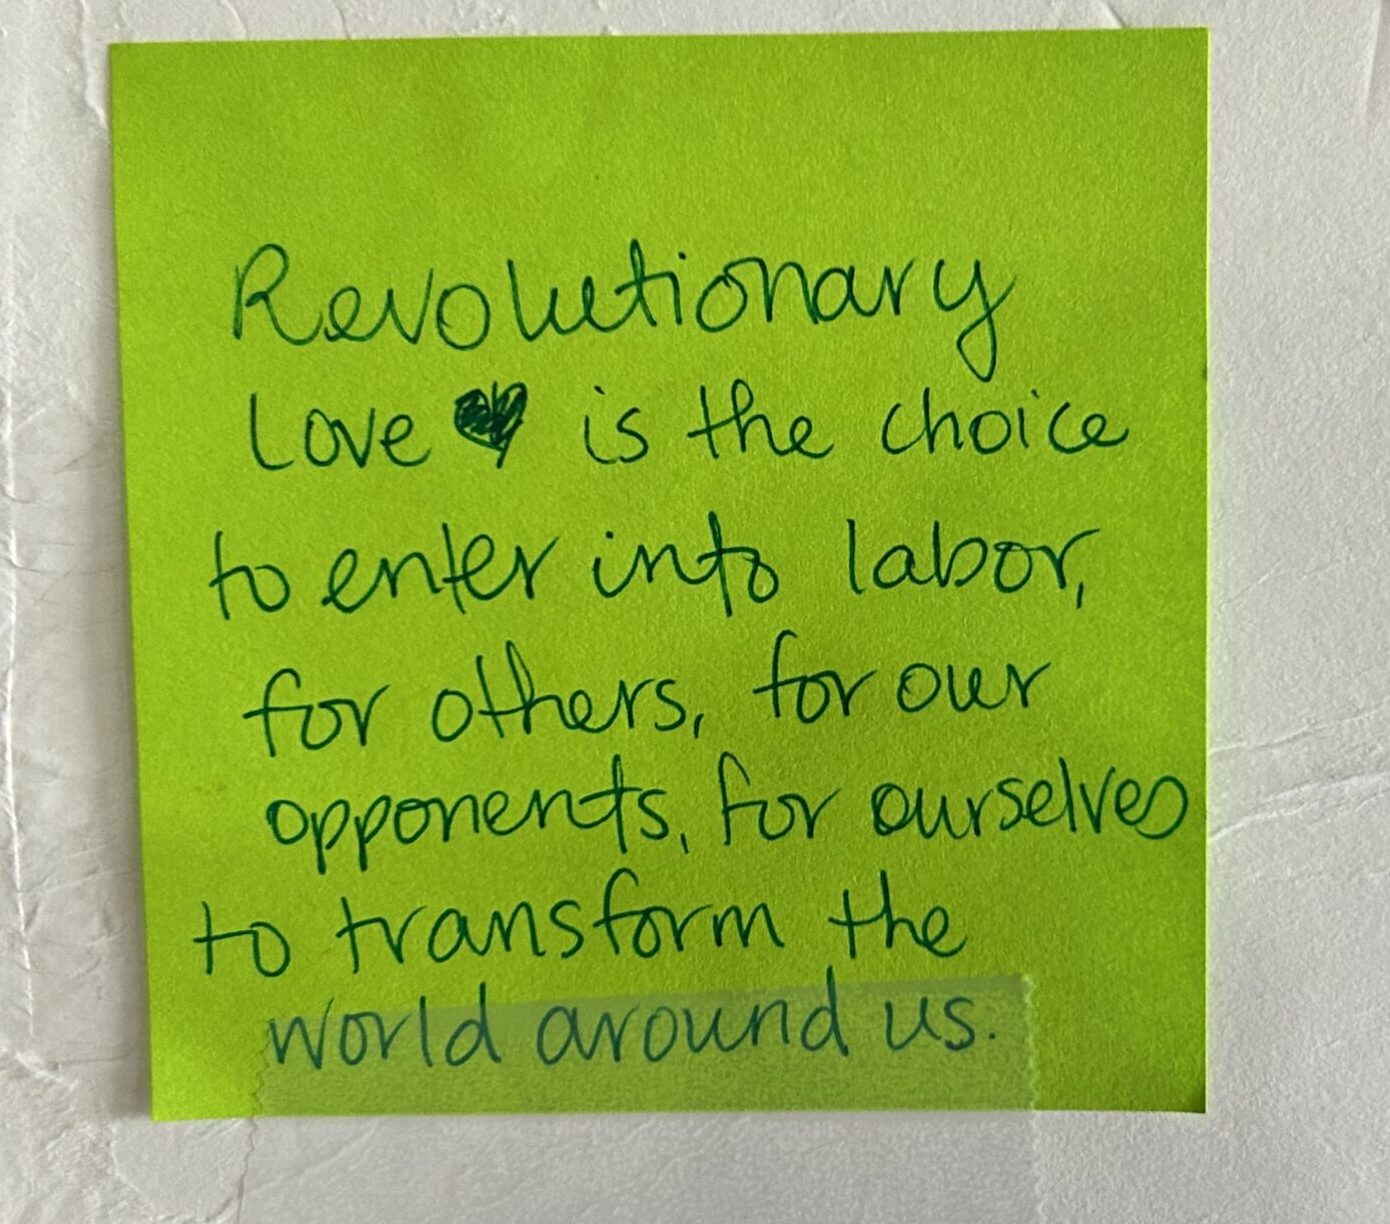 Revolutionary
Love ♥ is the choice
to enter into labor,
for others, for our
opponents, for ourselves
to transform the
world around us.